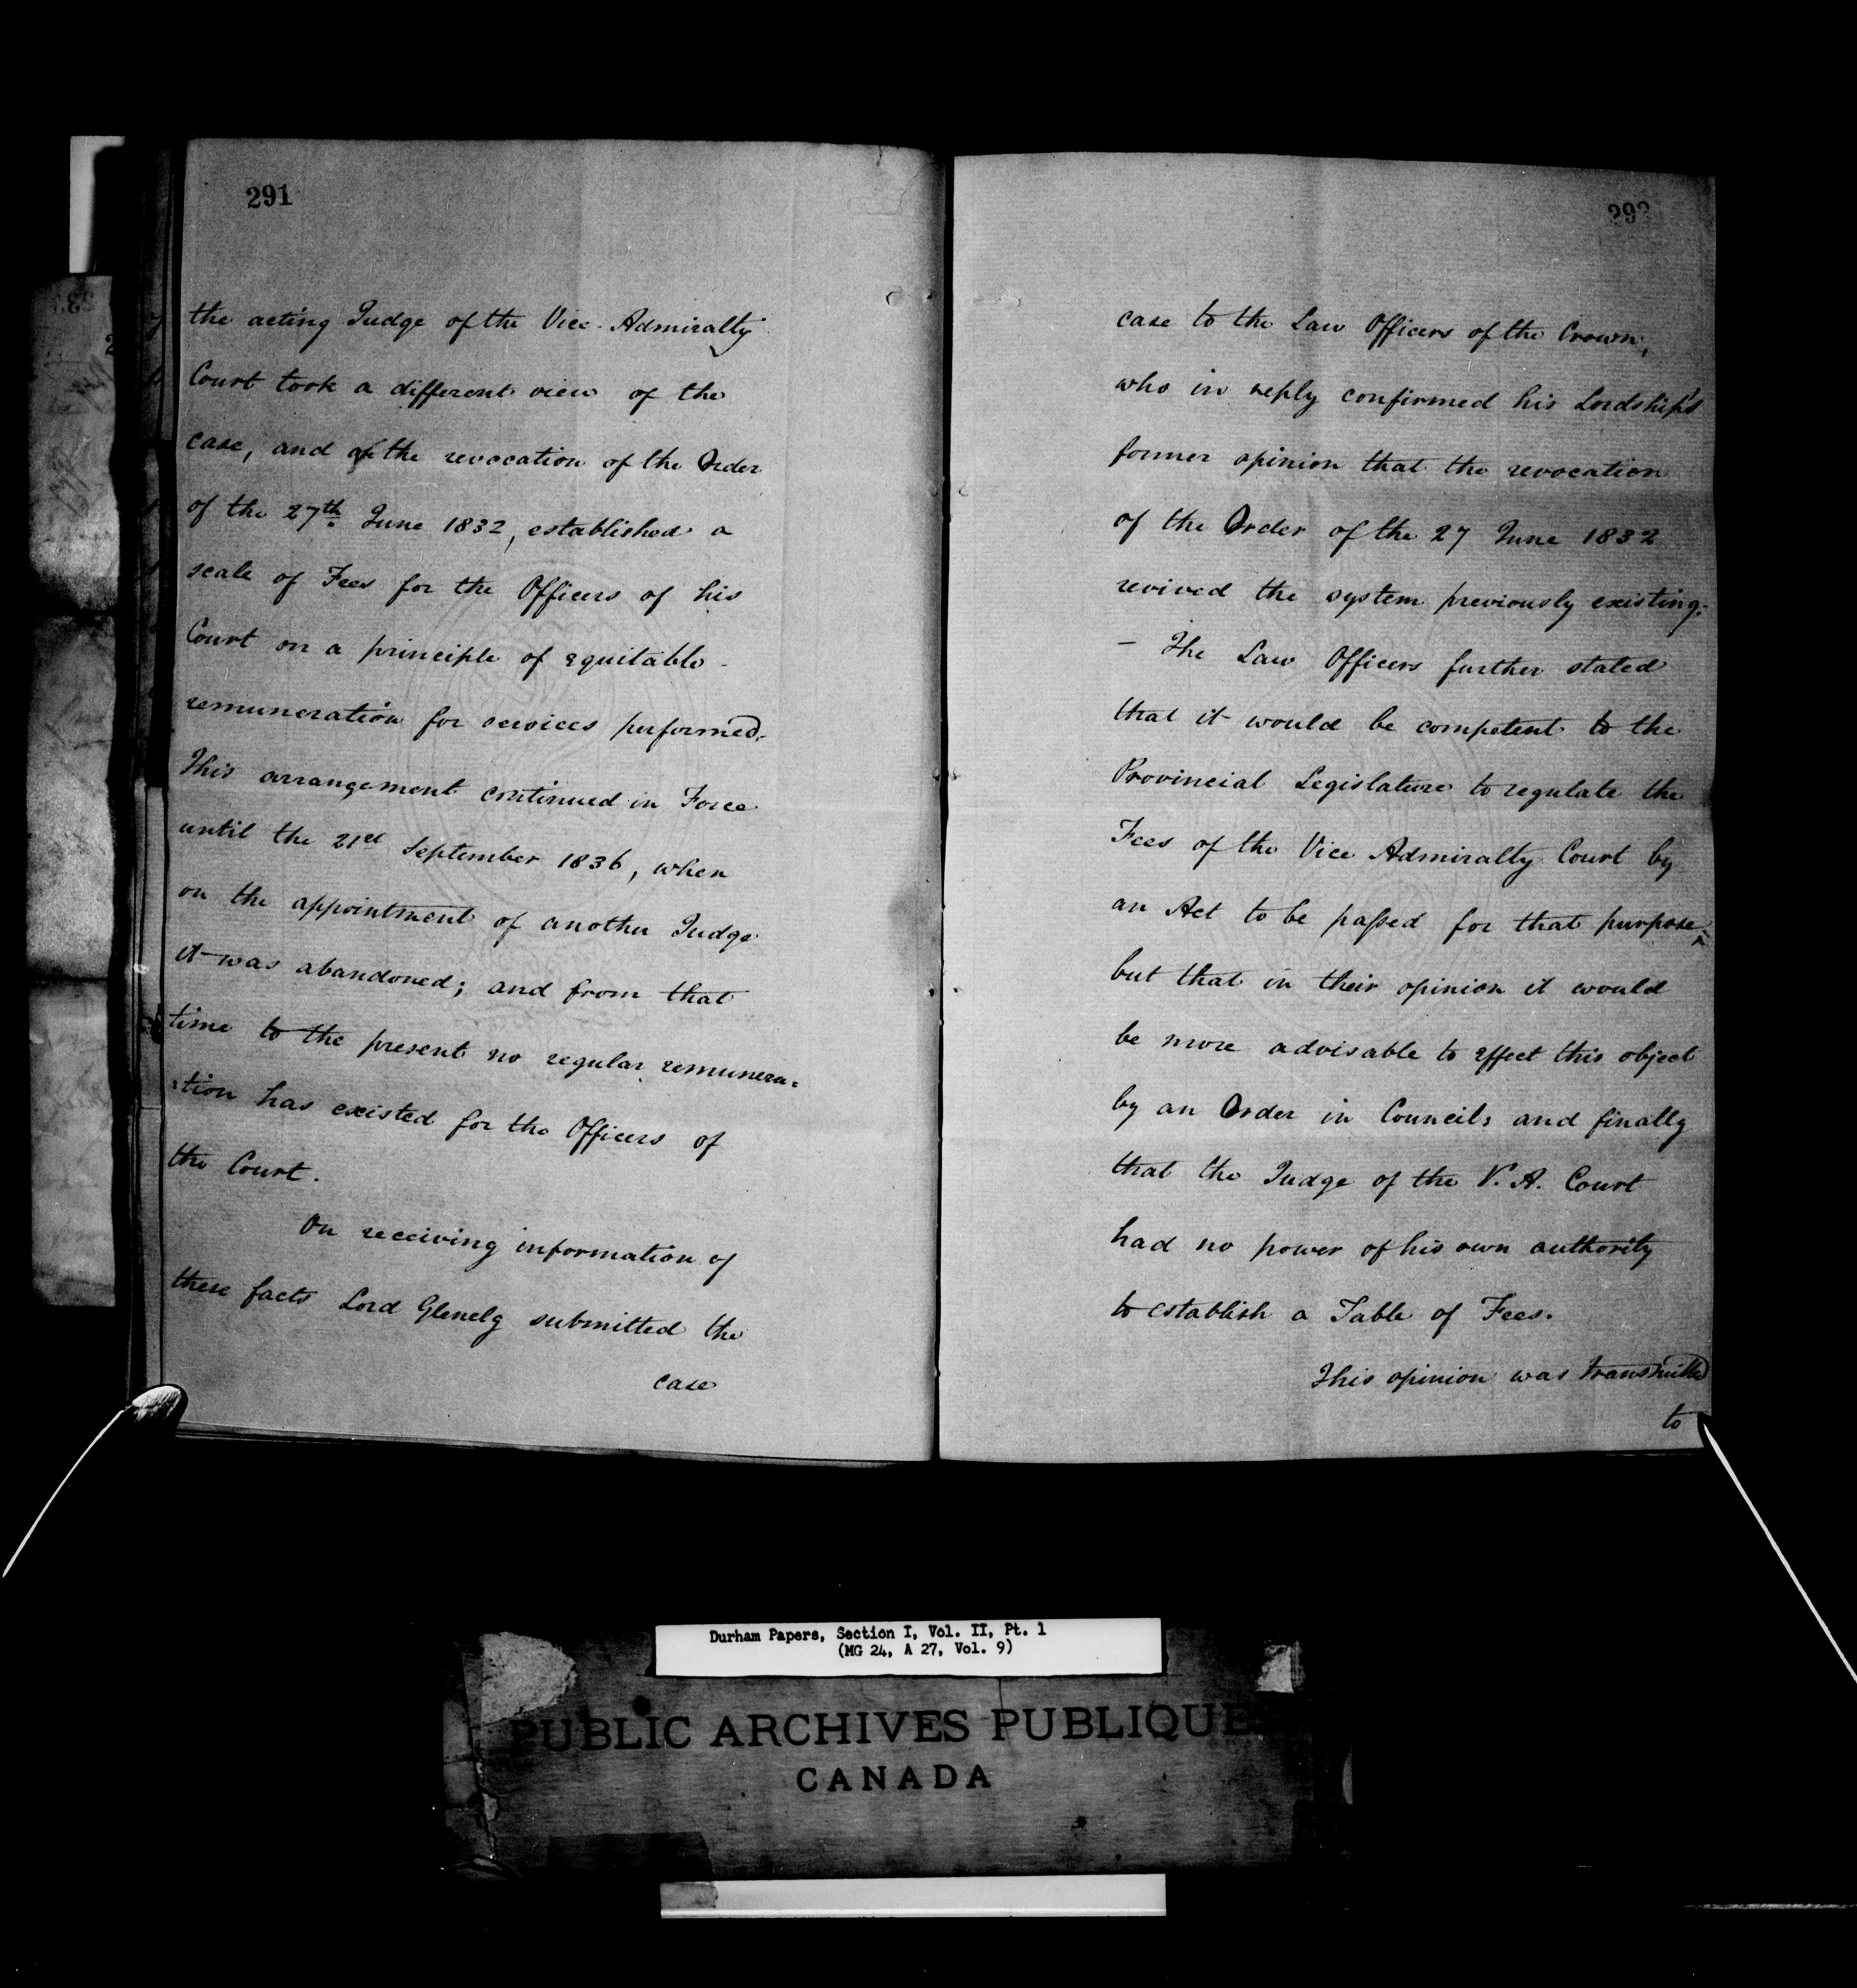 291
the acting Judge of the Vice-Admiralty
Court took a different view of the
case, and the revocation of the Order
of the 27th June 1832, established a
scale of Fees for the Officers of his
Court on a principle of equitable
remuneration for services performed.
This arrangement continued in Force
until the 21st September 1836, when
on the appointment of another Judge
it was abandoned; and from that
time to the present no regular remunera=
=tion has existed for the Officers of
the Court.
On receiving information of
these facts Lord Glenelg submitted the
case
292
case to the Law Officers of the Crown,
who in reply confirmed his Lordship's
former opinion that the revocation
of the Order of the 27 June 1832
revived the system previously existing.
— The Law Officers further stated
that it would be competent to the
Provincial Legislature to regulate the
Fees of the Vice Admiralty Court by
an Act to be passed for that purpose;
but that in their opinion it would
be more advisable to effect this object
by an Order in Council; and finally
that the Judge of the V. A. Court
had no power of his own authority
to establish a Table of Fees.
This opinion was transmitted
to
Durham Papers, Section I, Vol. II, Pt. 1
(MG 24, A 27, Vol. 9)
PUBLIC ARCHIVES PUBLIQUES
CANADA